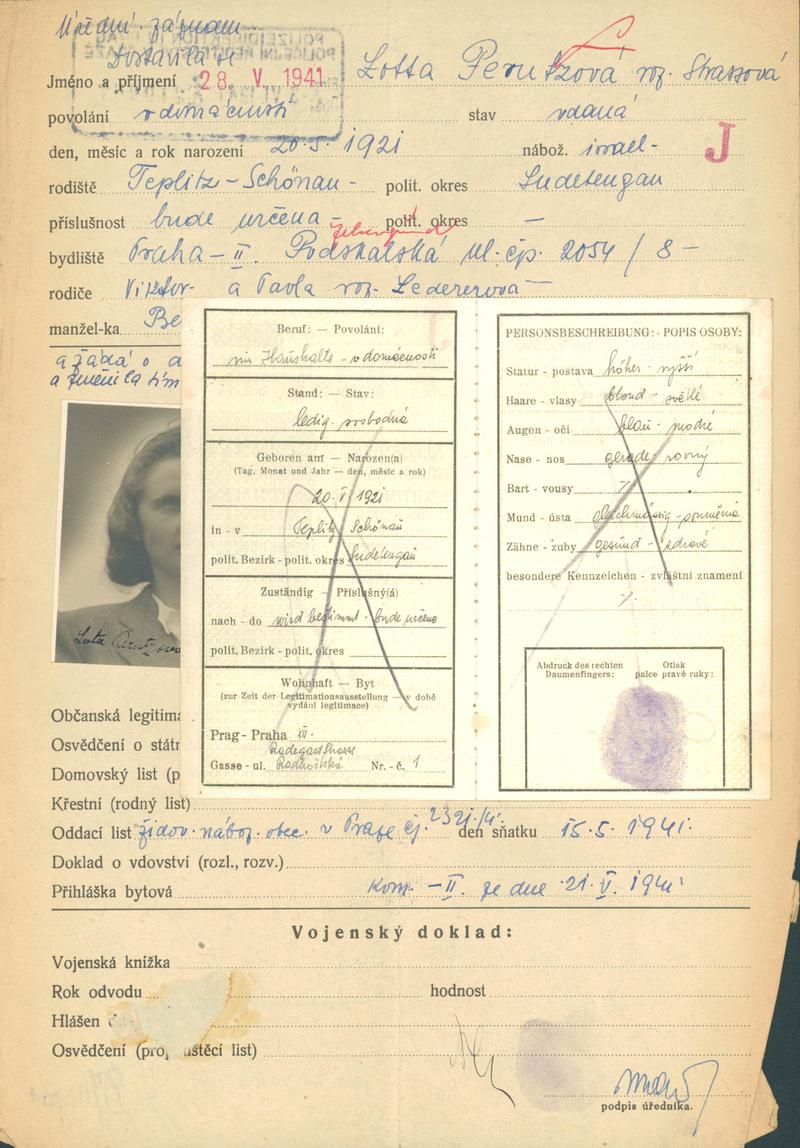 Úřední záznam.
Dostavila se
Jméno a příjmení 28. V. 1941 Lotta Perutzová roz. Strassová
povolání v domácnosti stav vdaná
den, měsíc a rok narození 20. 5. 1921 nábož. israel- J
rodiště Teplitz-Schönau - polit. okres Sudetengau
příslušnost bude určena - polit. okres —
bydliště Praha - II. Podskalská ul. čp. 2054 / 8 -
rodiče Viktor a Pavla roz. Ledererová
manžel-ka Be
a žádá o
a změnila tím
Lota Perutzová
Občanská legitima
Osvědčení o státn
Domovský list (p
Křestní (rodný list)
Oddací list židov. nábož. obce v Praze čj. 2321/41. den sňatku 15. 5. 1941.
Doklad o vdovství (rozl., rozv.)
Přihláška bytová kom. - II. ze dne 21. V. 1941
Vojenský doklad:
Vojenská knížka
Rok odvodu hodnost
Hlášen
Osvědčení (prop uštěcí list)
podpis úředníka.
Beruf: — Povolání:
im Haushalte - v domácnosti
Stand: — Stav:
ledig - svobodná
Geboren am — Narozen(a)
(Tag, Monat und Jahr — den, měsíc a rok)
20. V. 1921
in - v Teplitz Schönau
polit. Bezirk - polit. okres Sudetengau
Zuständig — Příslušný(á)
nach - do wird bestimmt - bude určena
polit. Bezirk - polit. okres
Wohnhaft — Byt
(zur Zeit der Legitimationsausstellung — v době
vydání legitimace)
Prag - Praha XII.
Radegaststrasse
Gasse - ul. Radhošťská Nr. - č. 1
PERSONSBESCHREIBUNG: - POPIS OSOBY:
Statur - postava höher - vyšší
Haare - vlasy blond - světlé
Augen - oči blau - modré
Nase - nos gerade - rovný
Bart - vousy %
Mund - ústa gleichmässig - souměrná
Zähne - zuby gesund - zdravé
besondere Kennzeichen - zvláštní znamení
%
Abdruck des rechten Daumenfingers: Otisk palce pravé ruky: